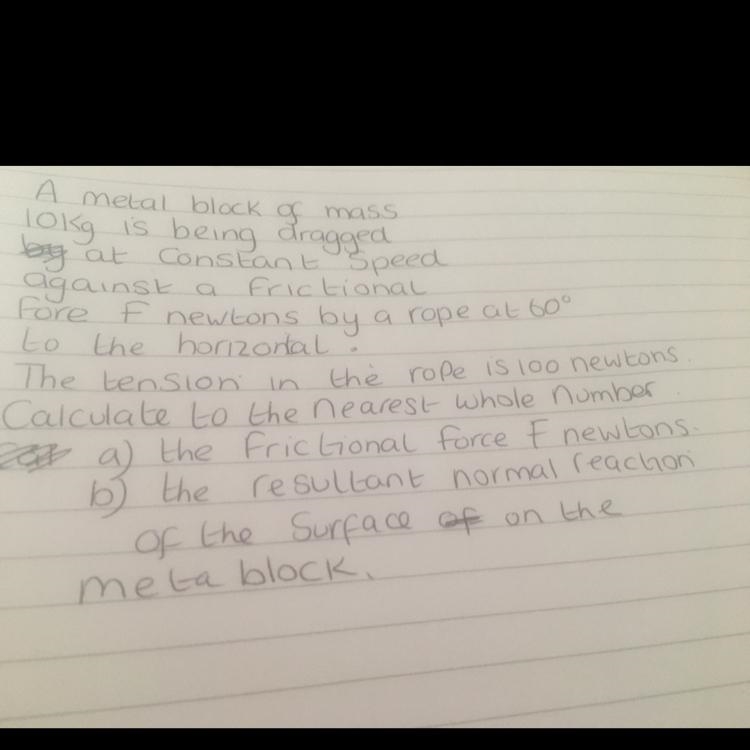 A metal block of mass
10Kg is being dragged
by at constant speed
against a frictional
fore F newtons by a rope at 60°
to the horizontal.
The tension in the rope is 100 newtons.
Calculate to the nearest whole number.
a) the frictional force F newtons.
b) the resultant normal reaction
of the surface of on the
meta block.